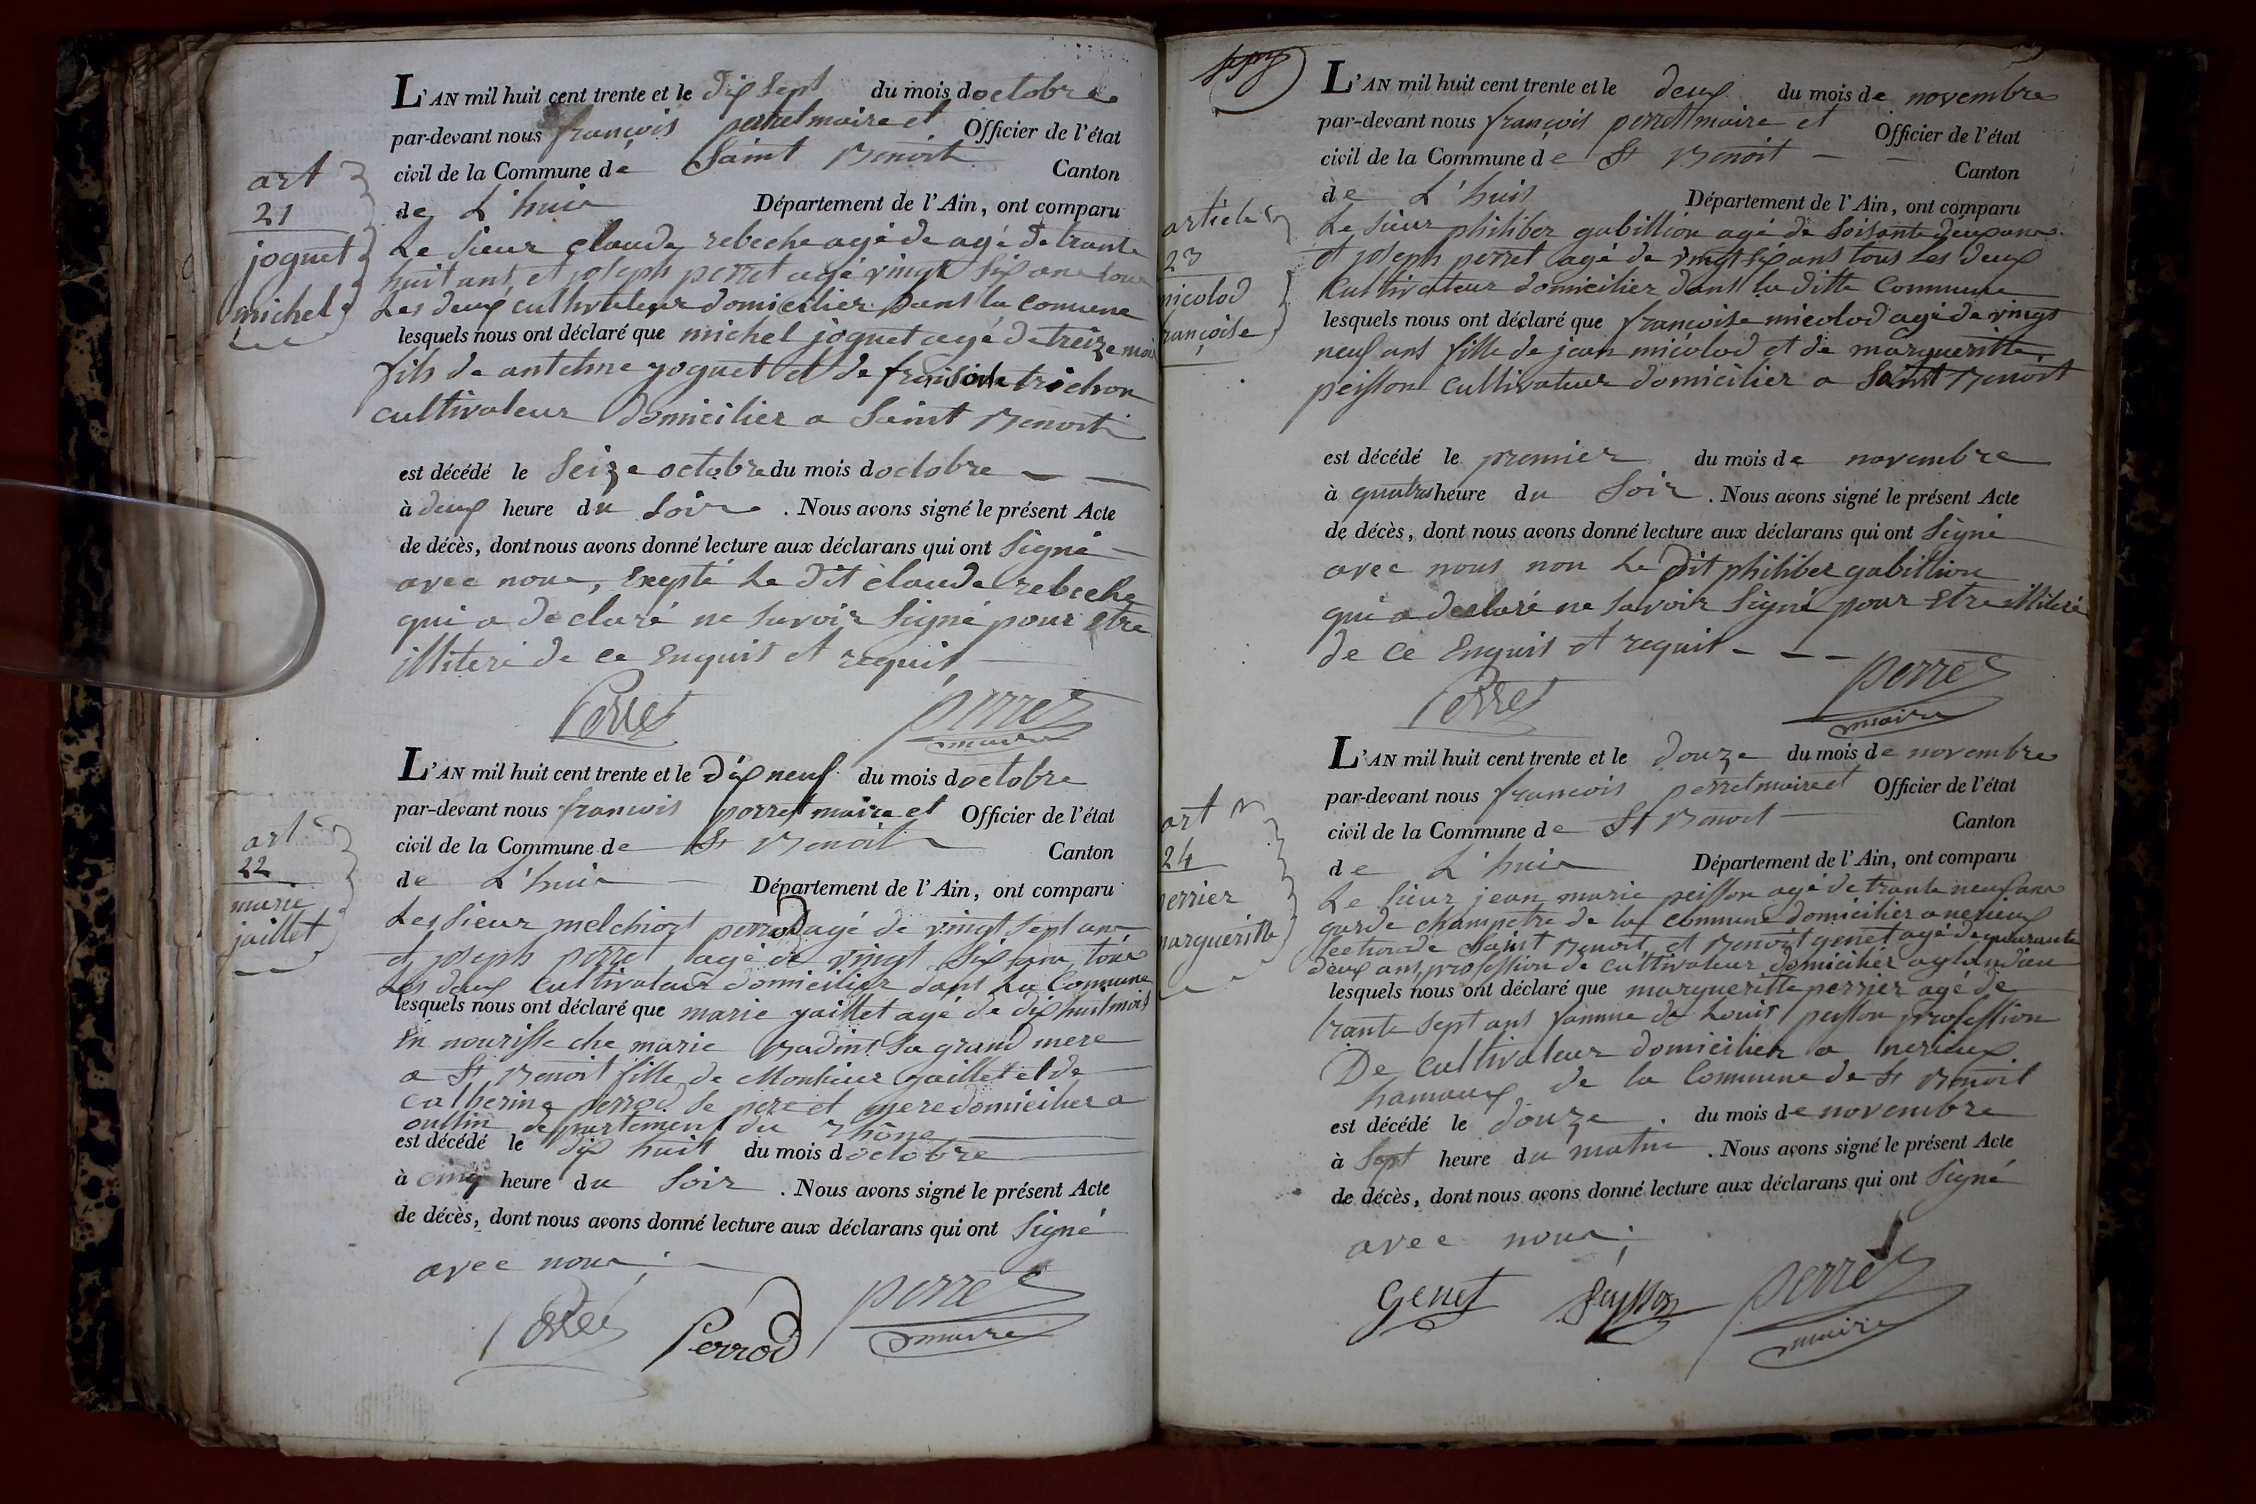 L'AN mil huit cent trente et le dix sept du mois doctobre
par-devant nous françois perret maire et Officier de l'état
civil de la Commune de Saint Benoit Canton
de L'huis Département de l'Ain, ont comparu
art
21
joguet
michel
Le sieur claude rebeche agé de agé de trante
huit ans et joseph perret agé vingt six ans tous
Les deux cultivateur domicilier dans la comune
lesquels nous ont déclaré que michel joguet agé de treize mois
fils de antelme joguet et de fransoise trichon
cultivateur domicilier a Saint Benoit
est décédé le seize octobre du mois doctobre
à deux heure du soir . Nous avons signé le présent Acte
de décès, dont nous avons donné lecture aux déclarans qui ont signé
avec nous, Exepté Le dit claude rebeche
qui a declaré ne savoir signé pour etre
illiteré de ce Enquis et requis
Perret perret
maire
L'AN mil huit cent trente et le dix neuf du mois doctobre
par-devant nous françois perret maire et Officier de l'état
civil de la Commune de St Benoit Canton
de L'huis Département de l'Ain, ont comparu
art
22
marie
jaillet
Les sieur melchiort perrod agé de vingt sept ans
et joseph perret agé de vingt six ans tous
Les deux cultivateur domicilier dans La Commune
lesquels nous ont déclaré que marie jaillet agé de dix huit mois
En nourisse che marie Badint sa grand mere
a St Benoit fille de Monsieur jaillet et de
catherine perrod se pere et mere domicilier a
oullin departement du rhône
est décédé le dix huit du mois doctobre
à cinq heure du soir . Nous avons signé le présent Acte
de décès, dont nous avons donné lecture aux déclarans qui ont signé
avec nous;
Perret Perrod perret
maire
L'AN mil huit cent trente et le deux du mois de novembre
par-devant nous françois perret maire et Officier de l'état
civil de la Commune de St Benoit Canton
de L'huis Département de l'Ain, ont comparu
article
23
micolod
françoise
Le sieur philiber gabillion agé de soisante deux ans
et joseph perret agé de vingt six ans tous Les deux
Cultivateur domicilier dans la ditte Commune
lesquels nous ont déclaré que françoise micolod agé de vingt
neuf ans fille de jean micolod et de margueritte
peisson cultivateur domicilier a Saint Benoit
est décédé le premier du mois de novembre
à quatres heure du soir . Nous avons signé le présent Acte
de décès, dont nous avons donné lecture aux déclarans qui ont signé
avec nous non Le dit philiber gabillion
qui a declaré ne savoir signé pour Etre illiteré
de ce Enquis et requis
Perret perret
maire
L'AN mil huit cent trente et le douze du mois de novembre
par-devant nous françois perret maire et Officier de l'état
civil de la Commune de St Benoit Canton
de L'huis Département de l'Ain, ont comparu
art
24
perrier
margueritte
Le sieur jean marie peisson agé de trante neuf ans
garde champetre de la commune domicilier a nerieux
section de Saint Benoit, et Benoit genet agé de quarante
deux ans profession de cultivateur domicilier a glandieu
lesquels nous ont déclaré que margueritte perrier agé de
trante sept ans famme de Louis peisson profession
De cultivateur domicilier a nerieux
hamaux de la Commune de St Benoit
est décédé le douze du mois de novembre
à sept heure du matin . Nous avons signé le présent Acte
de décès, dont nous avons donné lecture aux déclarans qui ont signé
avec nous;
Genet Peysson perret
maire